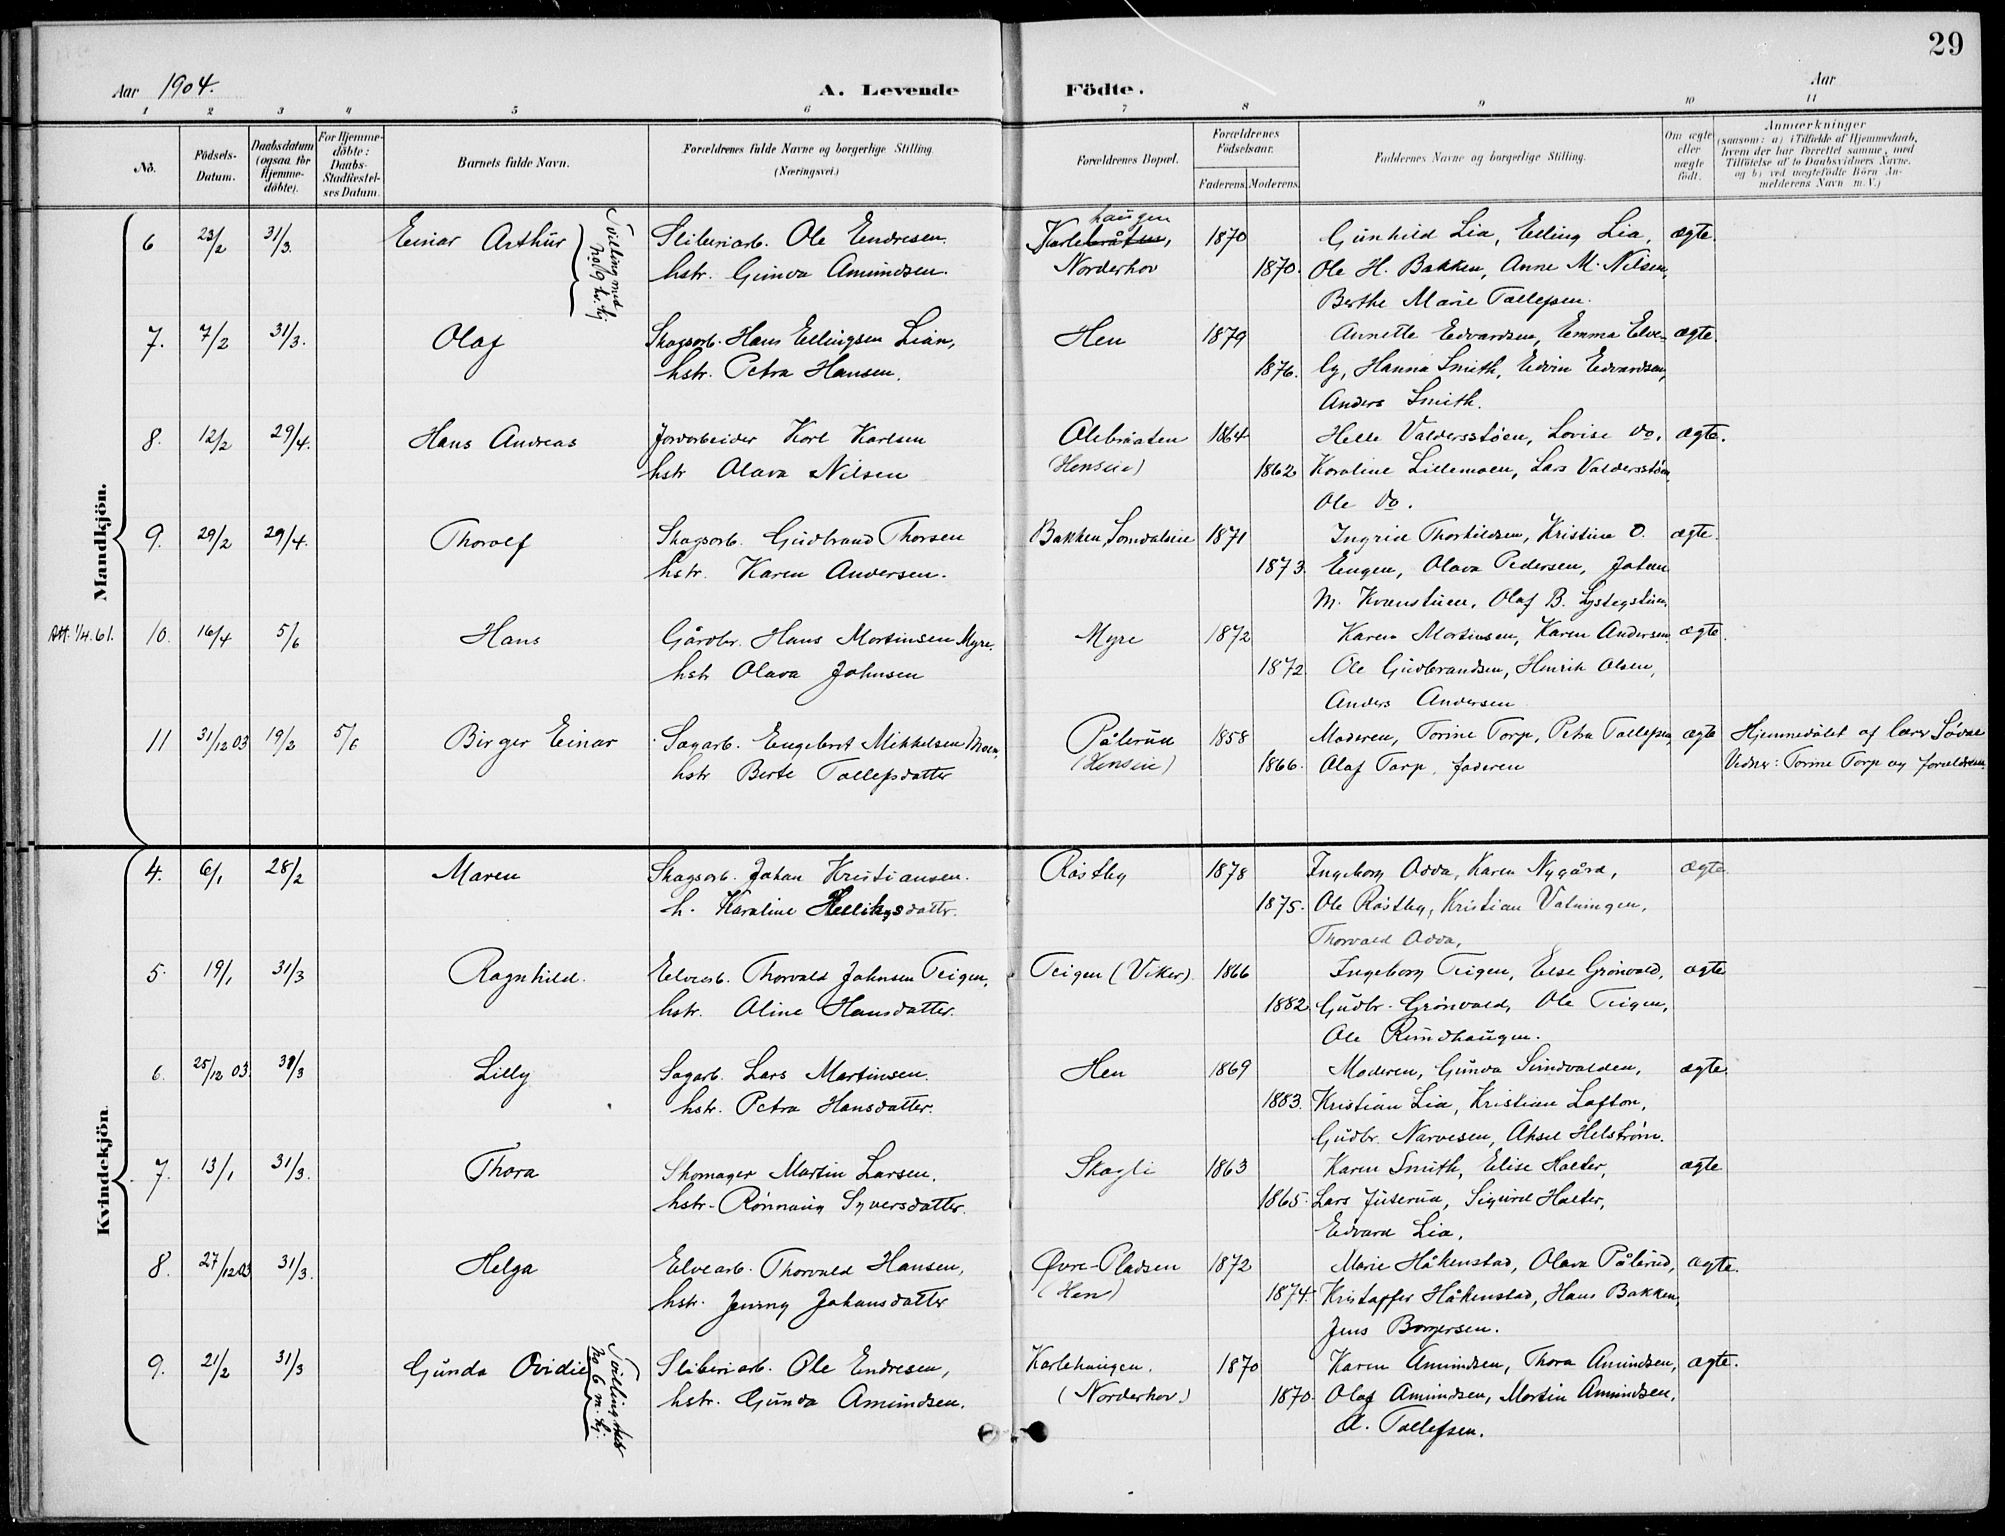 29
Aar 1904. A. Levende Födte. Aar
1 2 3 4 5 6 7 8 9 10 11
No. Födsels-Datum. Daabsdatum (ogsaa for Hjemme-döbte). For Hjemme-döbte: Daabs-Stadfæstel-ses Datum. Barnets fulde Navn. Forældrenes fulde Navne og borgerlige Stilling. (Næringsvei.) Forældrenes Bopæl. Forældrenes Födselsaar. Faderens. Moderens. Faddernes Navne og borgerlige Stilling. Om ægte eller uægte födt. Anmærkninger (saasom: a) i Tilfælde af Hjemmedaab, hvem der har forrettet samme, med Tilföielse af to Daabsvidners Navne. og b) ved uægtefödte Börn An-melderens Navn m. V.)
Mandkjön.
haugen
6 23/2 31/3. Einar Arthur Tvilling med No 9 kv. kj Sliberiarb. Ole Endresen. Karlebråten, 1870 Gunhild Lia, Elling Lia, ægte.
hstr. Gunda Amundsen. Norderhov 1870. Ole H. Bakken, Anne M. Nilsen,
Berthe Marie Tollefsen.
7. 7/2 31/3. Olaf Skogsarb. Hans Ellingsen Lian, Hen 1879 Annette Edvardsen, Emma Elve- ægte.
hstr. Petra Hansen. 1876. by, Hanna Smith, Edvin Edvardsen,
Anders Smith.
8. 12/2 29/4. Hans Andreas Jordarbeider Karl Karlsen Olebråten 1864 Helle Valdersstøen, Lovise do. ægte.
hstr Olava Nilsen (Henseie) 1862 Karoline Lillemoen, Lars Valdersstøen
Ole do.
9. 29/2 29/4. Thorolf Skogsarb. Gudbrand Thorsen Bakken, Somdalseie 1871 Ingrid Thorkildsen, Kristine O. ægte.
hstr. Karen Andersen. 1873. Engen, Olava Pedersen, Johan
M. Kvernstuen, Olaf B.
Att. 1/4.61. 10. 16/4 5/6 Hans Gårdbr. Hans Mortinsen Myre. Myre 1872 Karen Mortinsen, Karen Andersen ægte.
hstr Olava Johnsen 1872 Ole Gudbrandsen, Henrik Olsen,
Anders Andersen
11 31/12 03 19/2 5/6 Birger Einar Sagarb. Engebret Mikkelsen Moen, Pålerud 1858 Moderen, Torine Torp, Petra Tollefsen, ægte Hjemmedøbt af lærer Søvde
hstr Berte Tollefsdatter (Henseie) 1866. Olaf Torp, faderen Vidner: Torine Torp og forældrene.
Kvindekjön.
4. 6/1 28/2 Maren Skogsarb. Johan Kristiansen. Røstby 1878 Ingeborg Adda, Karen Nygård, ægte.
h. Karoline Helliksdattr. 1875. Ole Røstby, Kristian Vatningen,
Thorvald Adda.
5. 19/1 31/3 Ragnhild. Elvearb. Thorvald Johnsen Teigen, Teigen (Viker). 1866 Ingeborg Teigen, Else Grønvold, ægte
hstr. Oline Hansdatter. 1882 Gudbr. Grønvold, Ole Teigen,
Ole Rundhaugen.
6. 25/12 03 31/3 Lilly Sagarb. Lars Martinsen. Hen 1869 Moderen, Gunda Sundvolden, ægte.
hstr. Petra Hansdatter. 1883. Kristian Lia, Kristian Lofton,
Gudbr. Narvesen, Aksel Helstrøm.
7. 13/1 31/3. Thora Skomager Martin Larsen. Skogli 1863 Karen Smith, Elise Holter, ægte
hstr. Rønnaug Syversdatter. 1865. Lars Juserud, Sigurd Holter,
Edvard Lia.
8. 27/12 03 31/3. Helga Elvearb. Thorvald Hansen, Øvre-Pladsen 1872 Marie Håkenstad, Olava Pålerud, ægte.
hstr. Jenny Johansdatter (Hen) 1874 Kristoffer Håkenstad, Hans Bakken,
Jens Borgersen.
9. 21/2 31/3 Gunda Ovidie Tvilling med No 6 m. kj. Sliberiarb. Ole Endresen, Karlehaugen. 1870 Karen Amundsen, Thora Amundsen, ægte.
hstr. Gunda Amundsen. (Norderhov.) 1870. Olaf Amundsen, Mortin Amundsen,
A. Tollefsen.